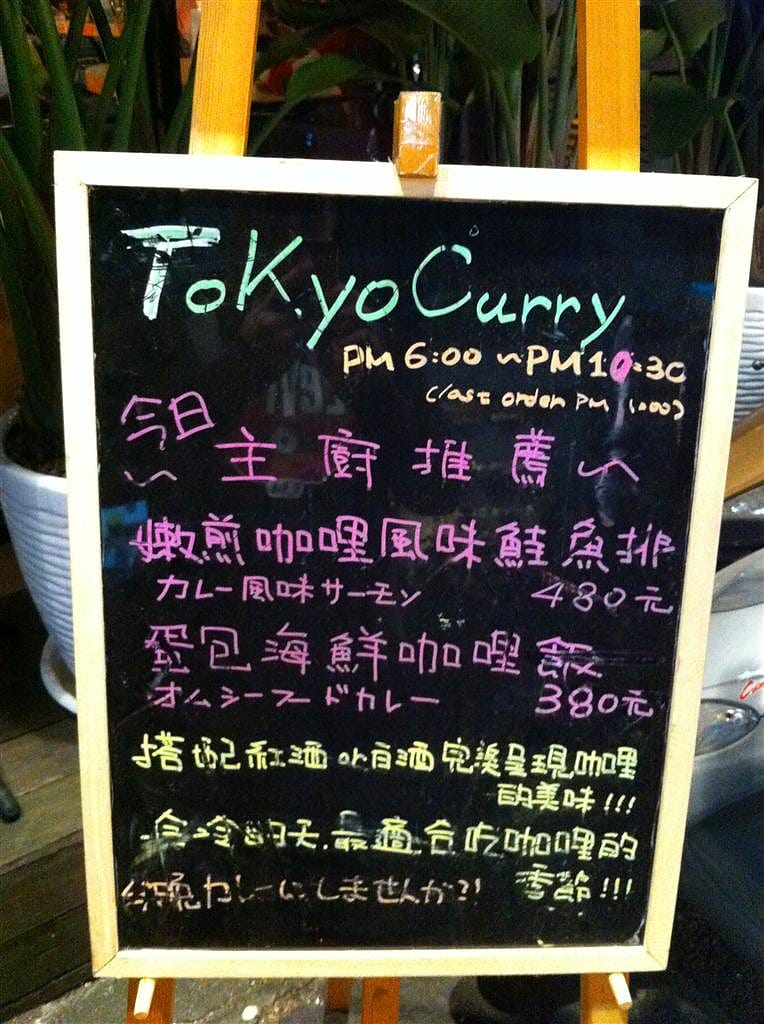 Tokyo Curry
PM 6:00 ~ PM 10:30
(last order PM 10:00)
今日
~主廚推薦~
嫩煎咖哩風味鮭魚排
カレー風味サーモン 480元
蛋包海鮮咖哩飯
オムシーフードカレー 380元
搭配紅酒or白酒完美呈現咖哩
的美味!!!
冷冷的天.最適合吃咖哩的
季節!!!
今晩カレーにしませんか?!